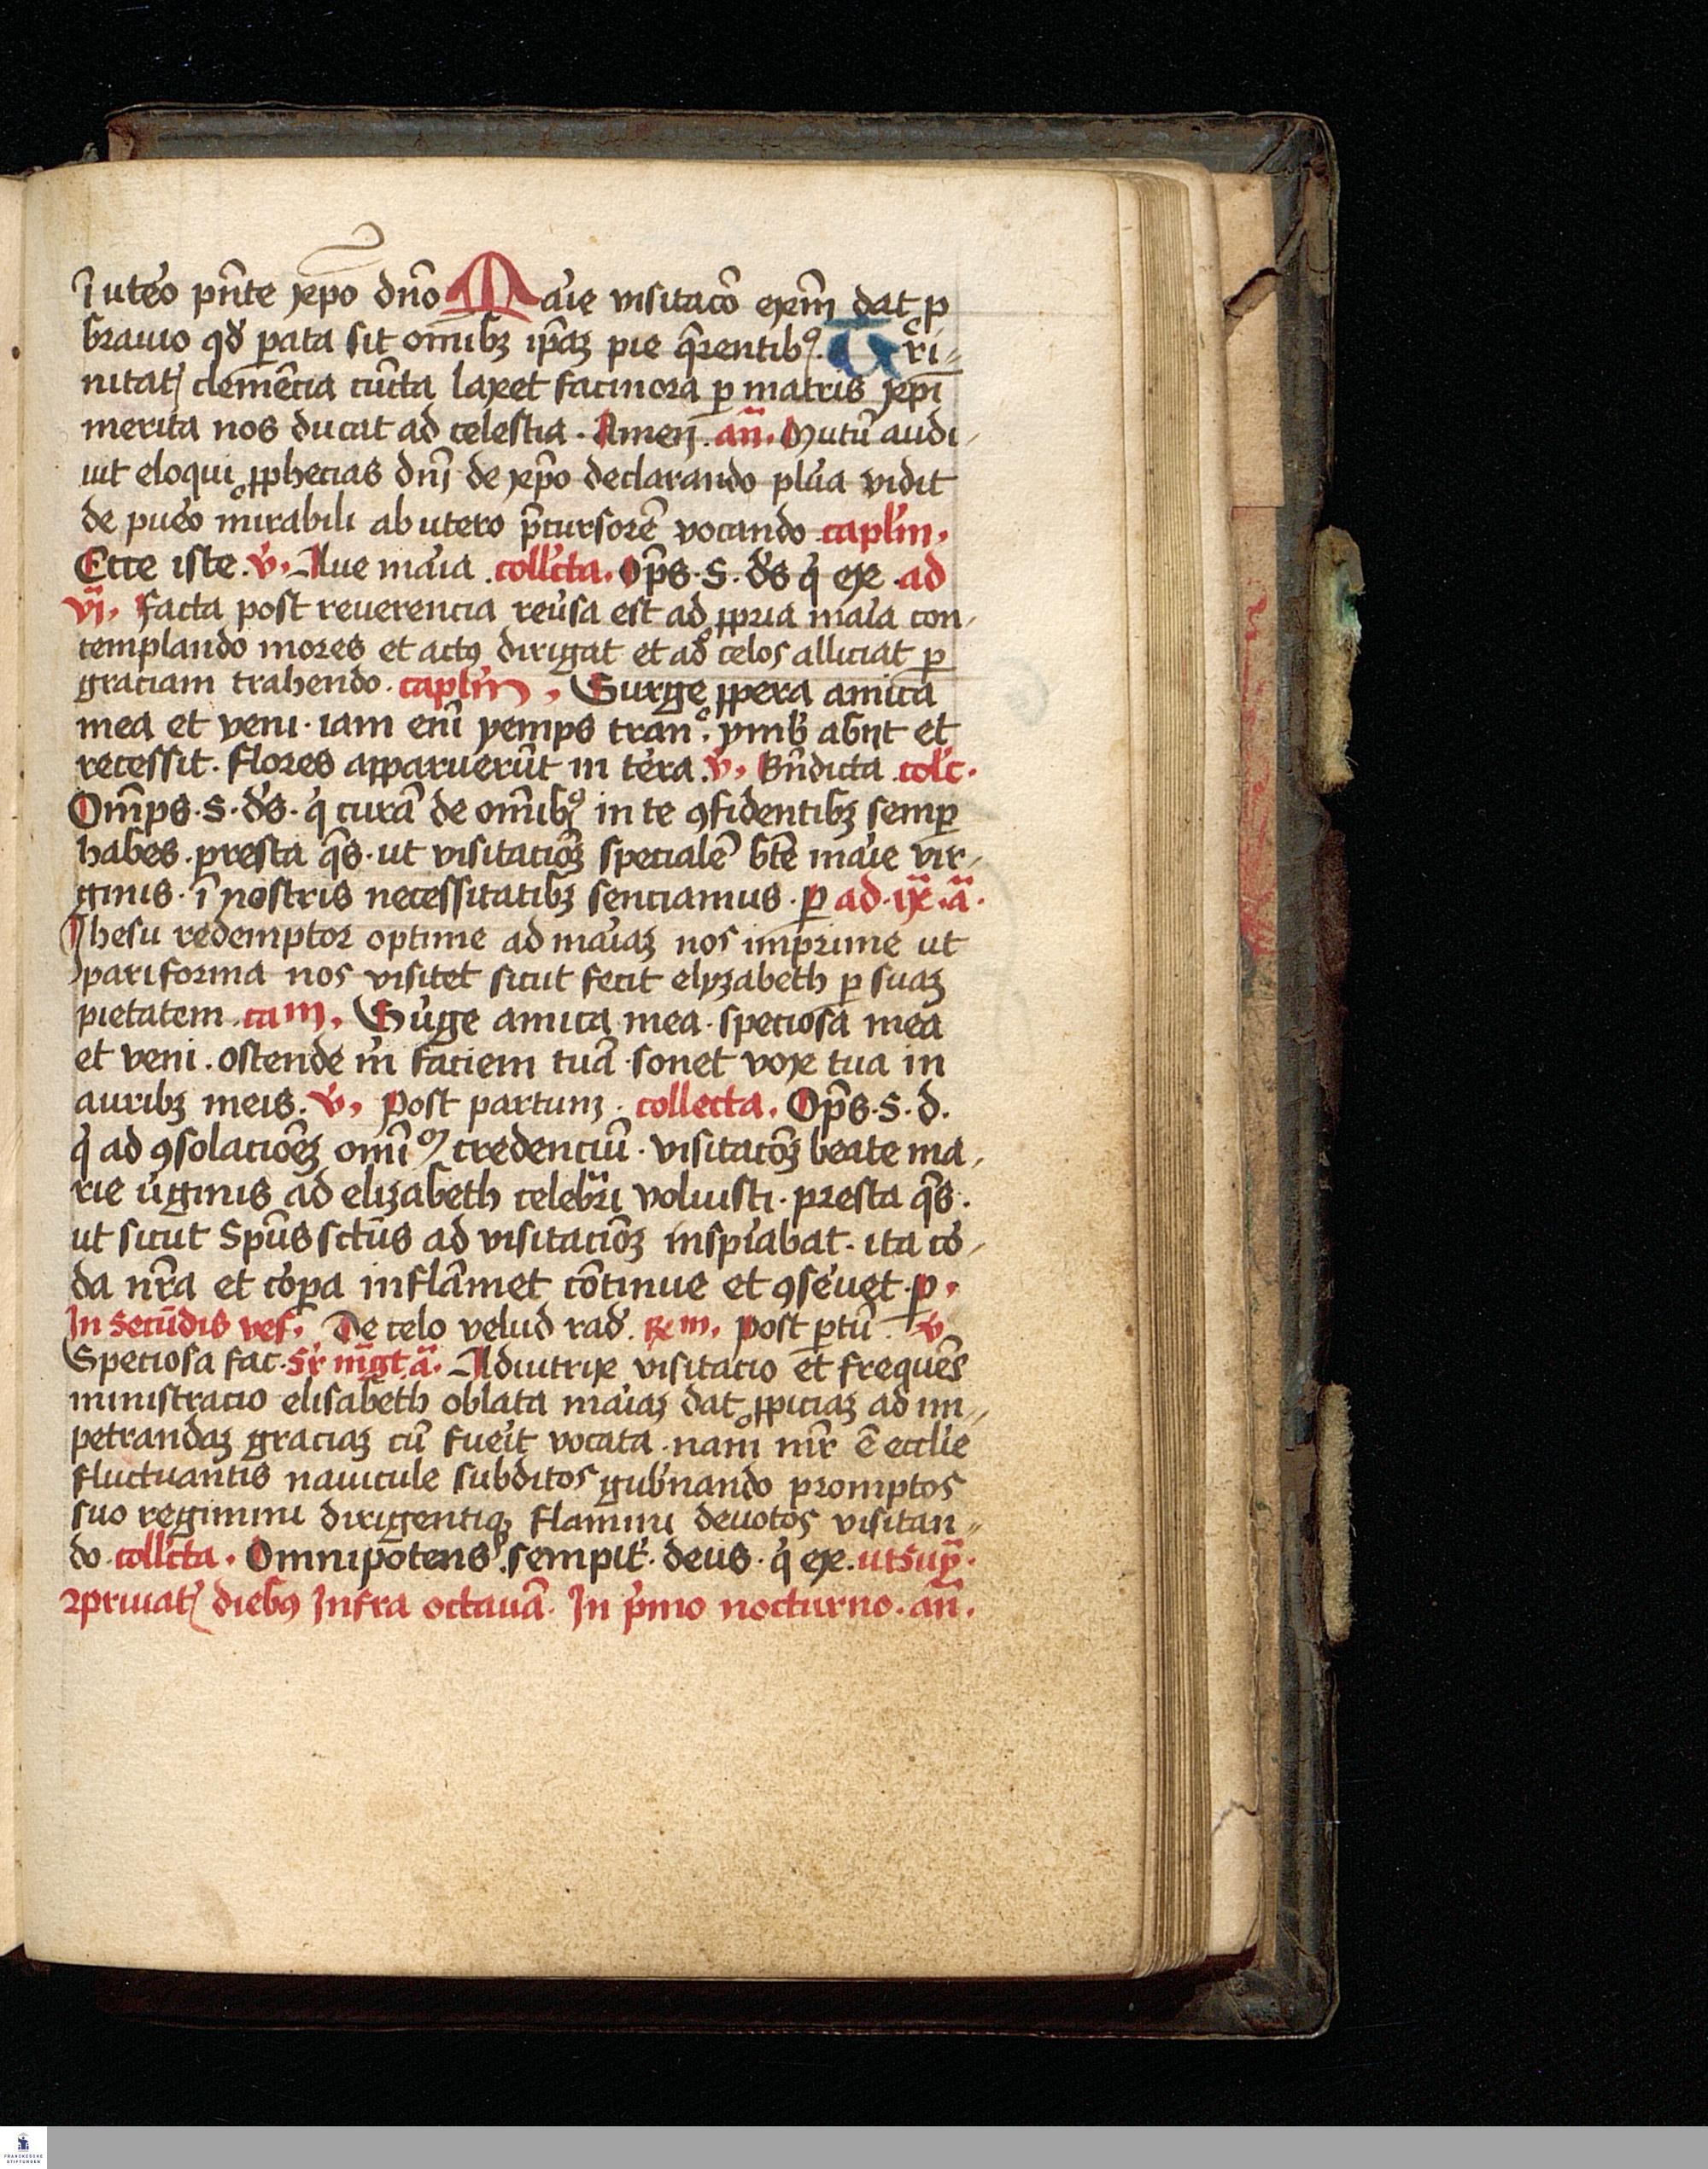 î utero pn̄te xp̄o dn̄o Mar̄ie visitacō exem̄ dat p
brauio qd̓ parata sit omībꝫ ip̄aꝫ pie q̄rentibꝰ. Tri⸗
nitatꝭ clemēcia cūcta laxet facinora ꝑ matris xp̄i
merita nos ducat ad celestia. Amen. an̄. Mutū audi⸗
uit eloqui ꝓphecias dn̄i de xp̄o declarando plura vidit
de puero mirabili ab utero p̄cursorē vocando capl̓m.
Ecce iste. v̓. Aue mar̄ia. coll̓cta. Op̄s. s. ds̓ q̓ ex ad
vi. Facta post reuerencia reuersa est ad ꝓpria maria con⸗
templando mores et actꝰ dirigat et ad celos alliciat ꝑ
graciam trahendo. capl̓m. Surge ꝓpera amica
mea et veni. iam enī yemps tran. ymb̓ abijt et
recessit. flores apparuerūt in terra. v̓. Bn̄dicta colc̓.
Om̄ps. s. ds̓. q̓ curā de omībꝰ in te ꝯfidentibꝫ semꝑ
habes. presta q̄s. ut visitacōꝫ specialē bt̄e marie vir⸗
ginis. ī nostris necessitatibꝫ senciamus. ꝑ ad. ix. ā.
Ihesu redemptor optime ad mariaꝫ nos imprime ut
pariforma nos visitet sicut fecit elyzabeth ꝑ suaꝫ
pietatem. cam. Surge amica mea. speciosa mea
et veni. ostende m̄ faciem tuā. sonet vox tua in
auribꝫ meis. v̓. Post partum. collecta. Op̄s. s. d.
q̓ ad ꝯsolacioēꝫ omīꝰ credenciū. visitacōꝫ beate ma⸗
rie uirginis ad elizabeth celebrari voluisti. presta q̄s.
ut sicut Spūs sctūs ad visitaciōꝫ inspirabat. ita cor⸗
da nr̄a et corꝑa inflāmet cōtinue et ꝯseruet. ꝑ.
In secūdis vesp̄. De celo velud rad̓. Rm. post ꝑtū. v̓
Speciosa fac. Sr̄ mḡt ā. Adiutrix visitacio et frequēs
ministracio elisabeth oblata mariaꝫ dat ꝓpiciaꝫ ad im⸗
petrandaꝫ graciaꝫ cū fuerit vocata. nam mr̄ ē eccl̓ie
fluctuantis nauicule subditos gub̓nando promptos
suo regimini dirigentiqꝫ flamini deuotos visitan⸗
do. coll̓cta. Omnipotens. sempit̓. deus. q̓ ex. ut sup̄.
ꝛpriuatꝭ diebꝰ Infra octauā. In p̓mo nocturno. an̄.